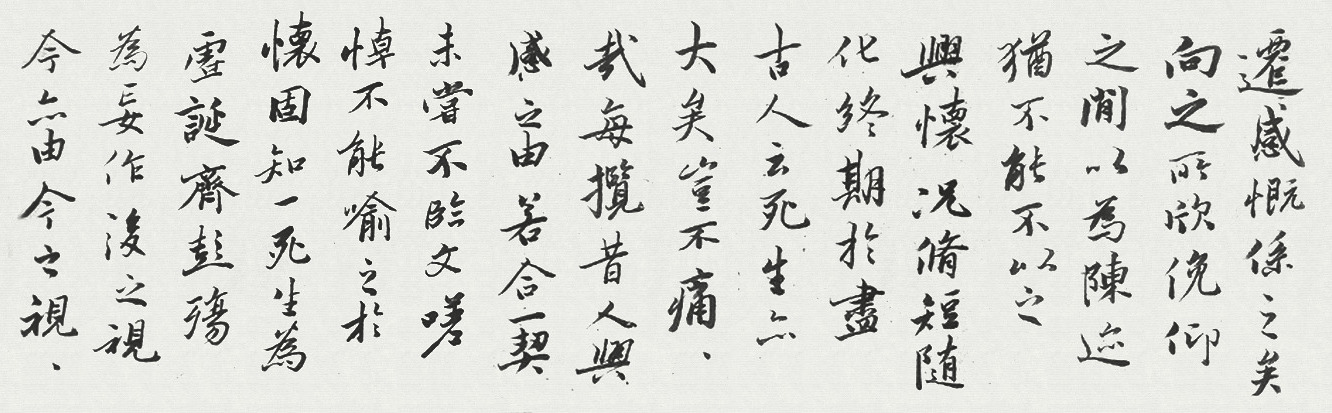 遷感慨係之矣
向之所欣俛仰
之閒以為陳迹
猶不能不以之
興懷况脩短随
化終期於盡
古人云死生亦
大矣豈不痛、
哉每攬昔人興
感之由若合一契
未嘗不臨文嗟
悼不能喻之於
懷固知一死生為
虛誕齊彭殤
為妄作後之視
今亦由今之視、